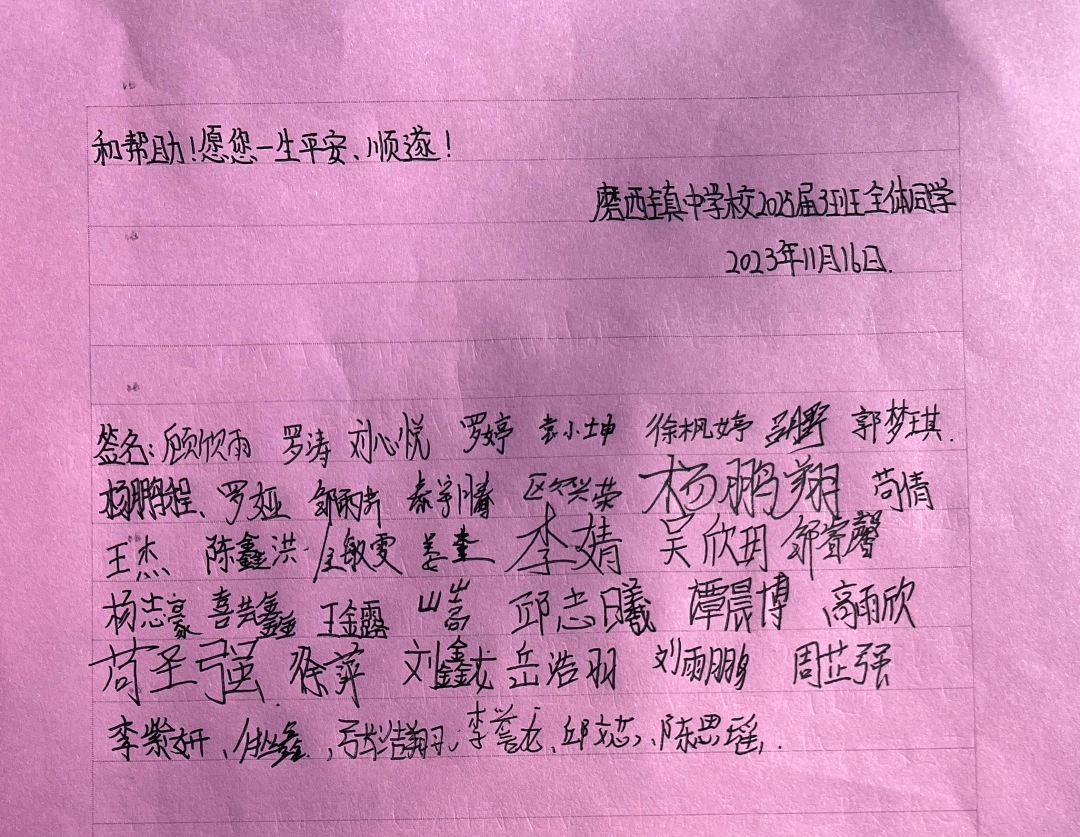 和帮助！愿您一生平安、顺遂！
磨西镇中学校2025届3班班全体同学
2023年11月16日.
签名：顾欣雨 罗涛 刘心悦 罗婷 袁小坤 徐枫婷 郭梦琪.
杨鹏程、罗娅 秦宇晴 区兴荣 杨鹏翔 苟倩
王杰 陈鑫洪 敏雯 姜奎 李婧 吴欣玥 邹
杨志豪 喜 鑫 王金露 邱志曦 谭晨博 高雨欣
苟圣强 徐萍 刘鑫龙 岳浩羽 刘雨鹏 周芷强
李紫妍、 浩翔、李誉龙、邱文芯、陈思瑶，.